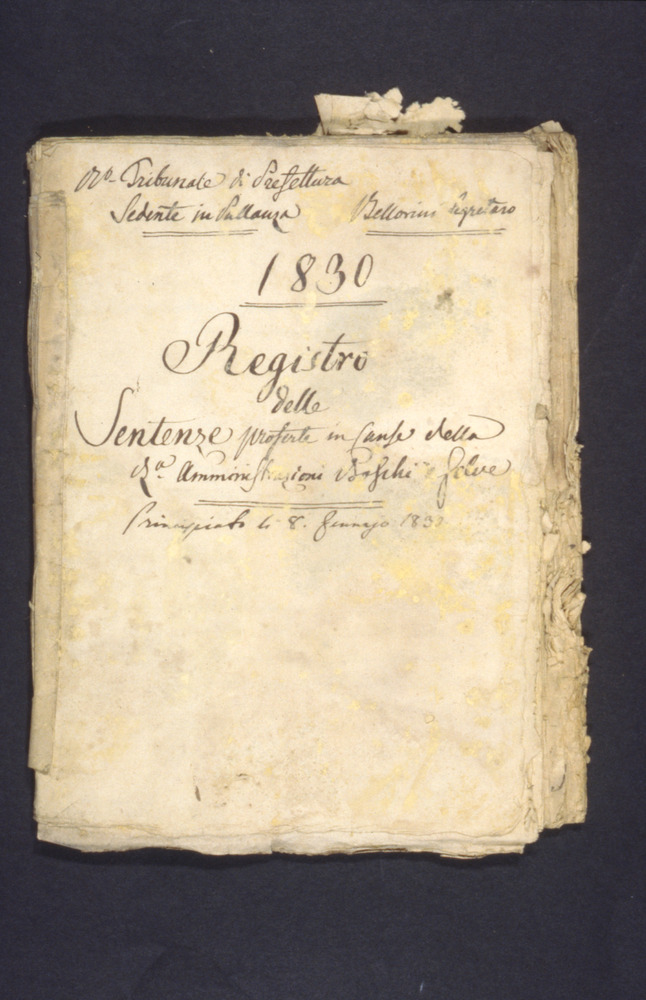 Ro. Tribunale di Prefettura
Sedente in Pallanza Bellorini Segretaro
1830
Registro
delle
Sentenze proferte in Cause della
Ra. Amministrazioni Boschi e Selve
Principiato li 8. Gennajo 1830